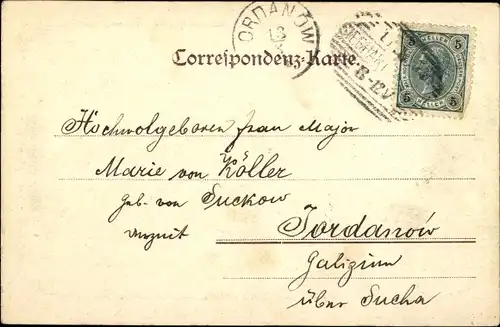 ORDANÓW
13
Correspondenz-Karte.
5 5
HELLER
Hochwolgeboren frau Major
Marie von Köller
Geb. von Suckow
Jordanów
Galizien
über Sucha